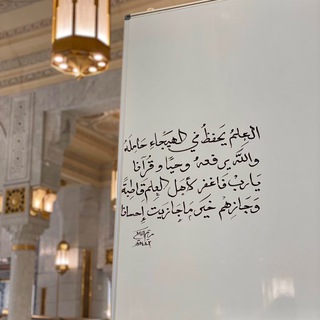 العِلمُ يَحفظُ في الهيجاءِ حَامِلَهُ
واللّهُ يرفعهُ وحيًا و قُرآنا
يا ربّ فاغفر لأهل العِلمِ قاطِبَةً
وَجازِهم خَيرَ ما جازيت إحسانا